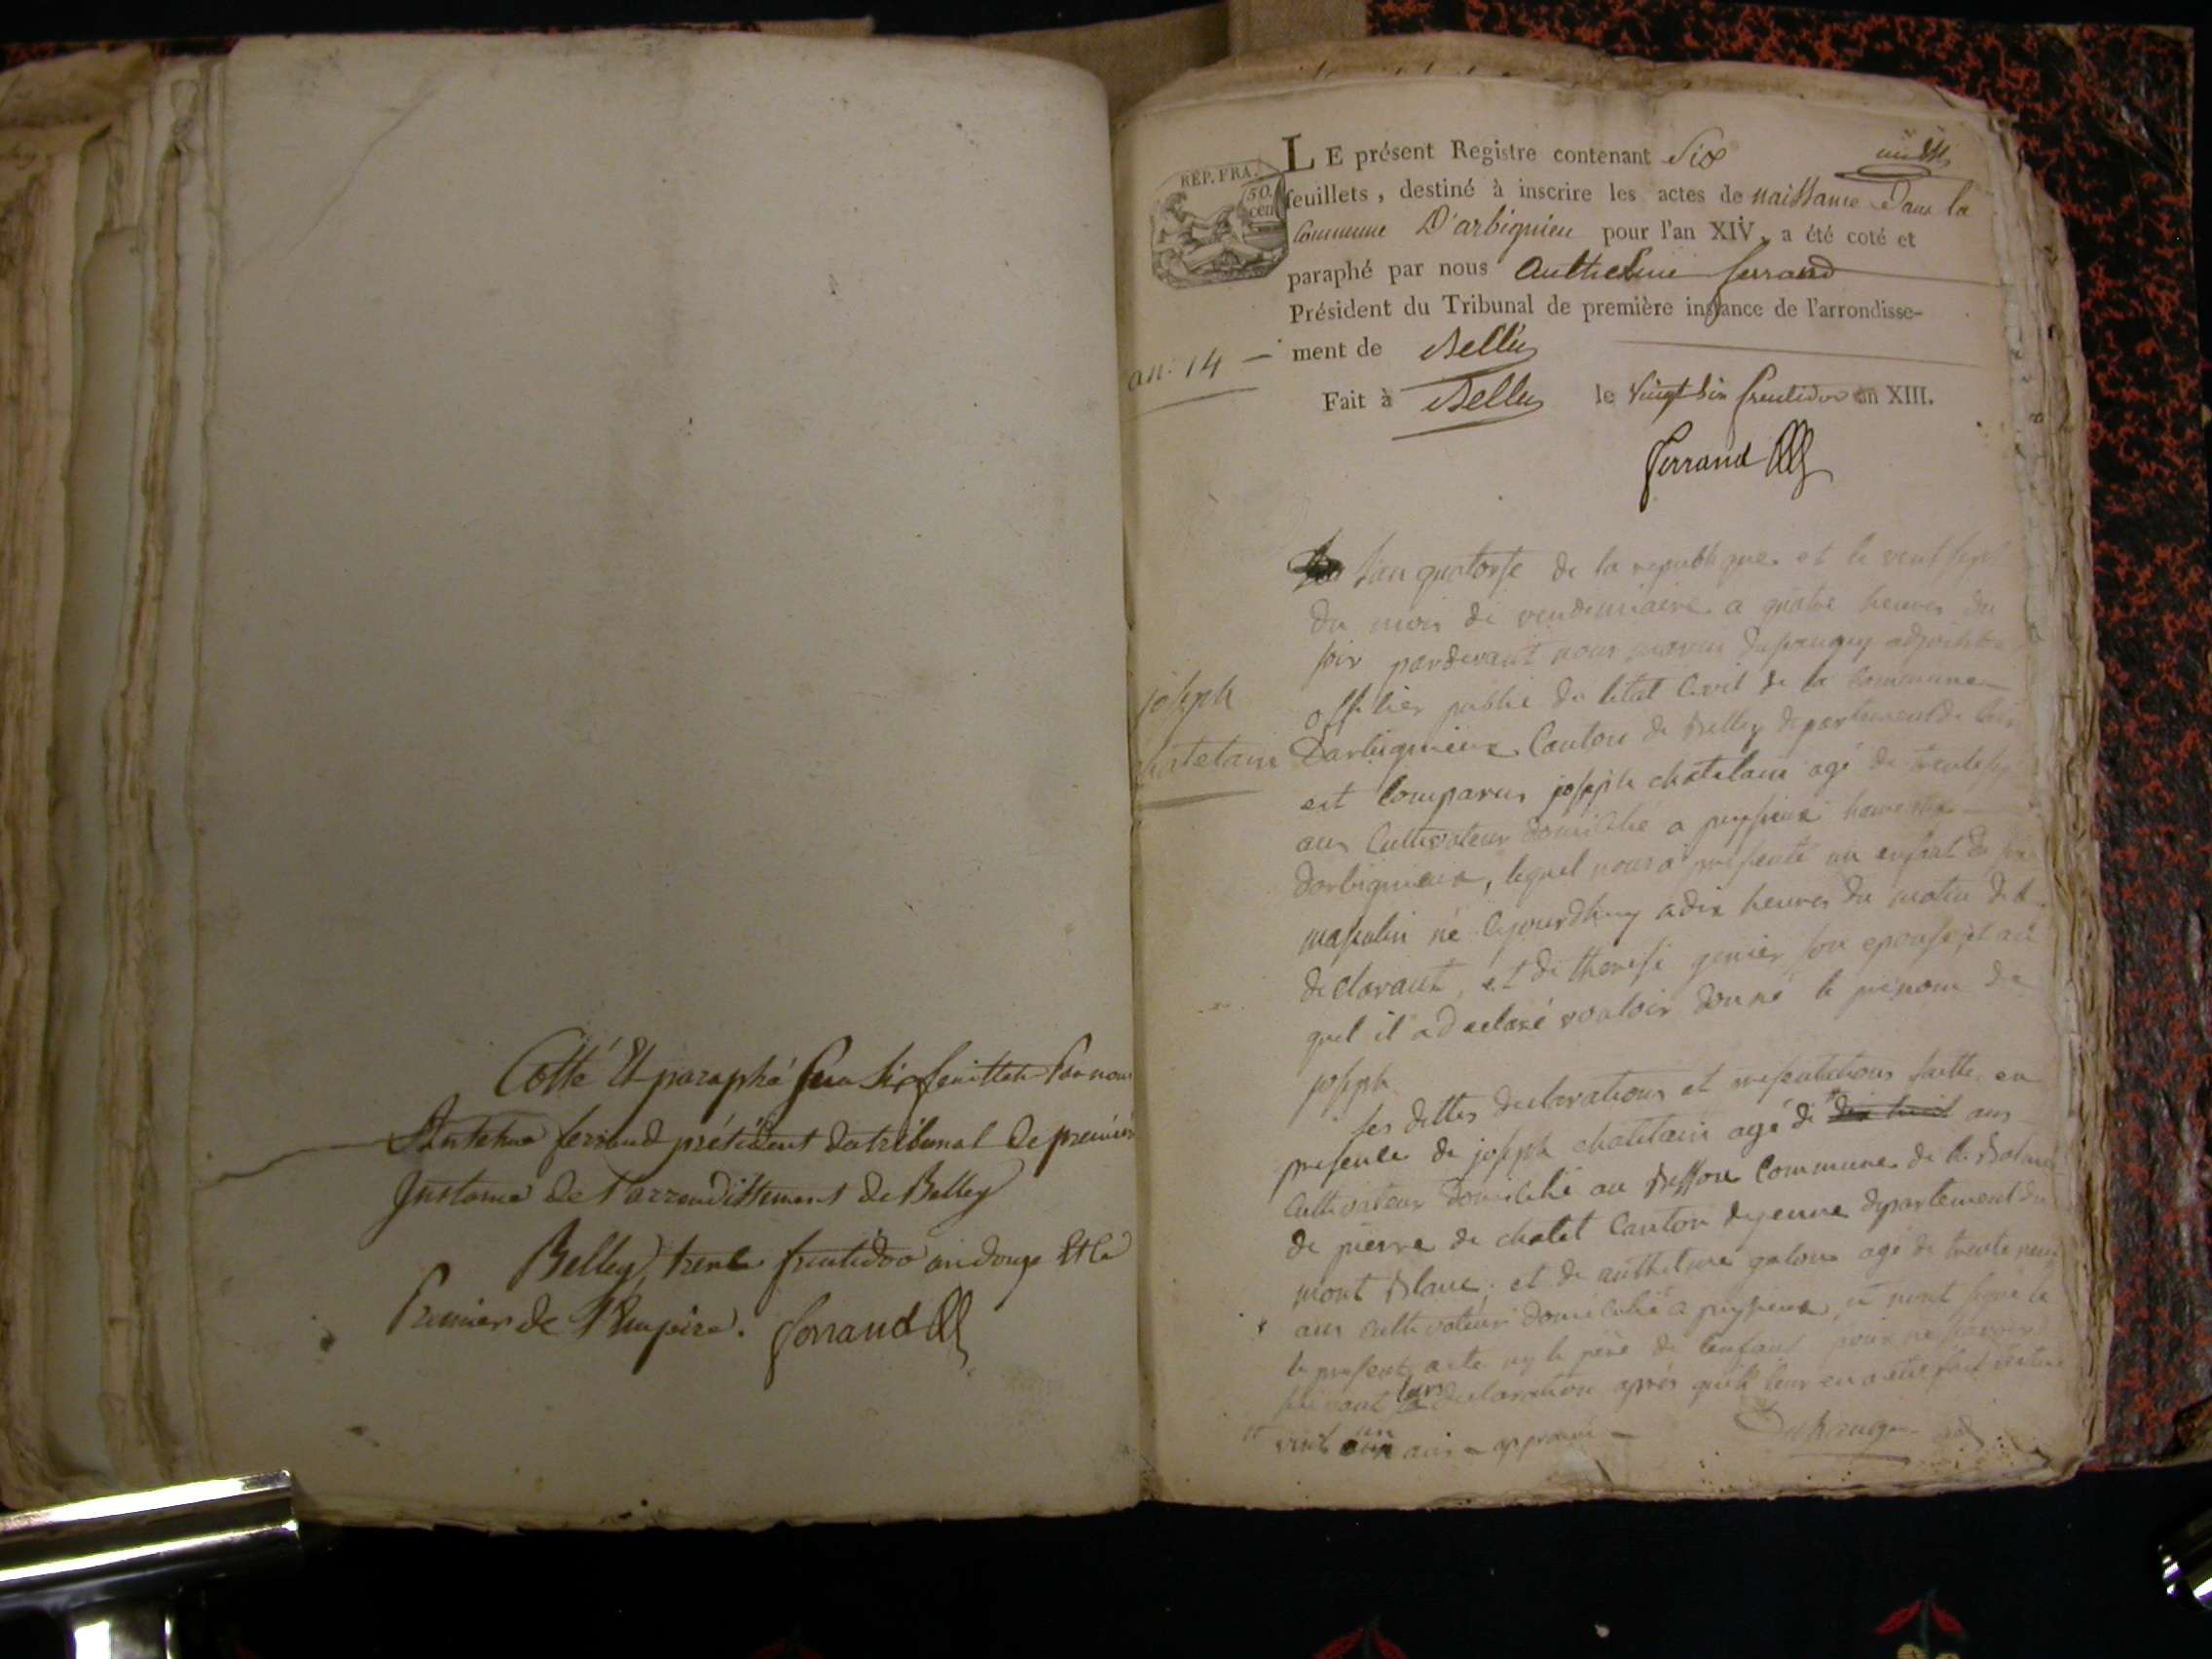 Cotté Et paraphé sur six feuillets Par nous
Antelme ferrand président du tribunal de premiere
Instance de l'arrondissement de Belley
Belley, trente fructidor an douze Et le
Premier de l'Empire. ferrand
REP. FRA.
50.
cen
LE présent Registre contenant Six
feuillets, destiné à inscrire les actes de naissance dans la
Commune D'arbignieu pour l'an XIV, a été coté et
paraphé par nous Anthelme ferrand
Président du Tribunal de première instance de l'arrondisse-
ment de Belley
Fait à Belley le vingt six fructidor an XIII.
ferrand
an: 14 -
joseph
chatelain
l'an quatorse de la republique et le vent sept
du mois de vendemiaire a quatre heures du
soir pardevant nous adjoint
officier public de letat Civil de la Commune
Darbignieux Canton de Belley departement de
est Comparus joseph chatelain agé de trente sept
ans Cultivateur domicilié a peyzieux hameau
darbignieux, lequel nous a presenté un enfant du
masculin né cejourdhuy a dix heures du matin de
declarant, et de therese genier son epouse, et au
quel il a declaré vouloir donné le prenom de
joseph
les dittes declarations et presentations faitte en
presence de joseph chatelain agé de dix huit ans
Cultivateur domicilié au Commune de la Balme
de pierre de chatel Canton dyenne departement du
mont Blanc, et de anthelme agé de trente neuf
ans cultivateur domicilié a peyzieux, n'ont signé le
le present acte ny le père de lenfant pour ne savoir
suivant leurs declaration après quil leur en a été fait lecture
vint un ans approuvé